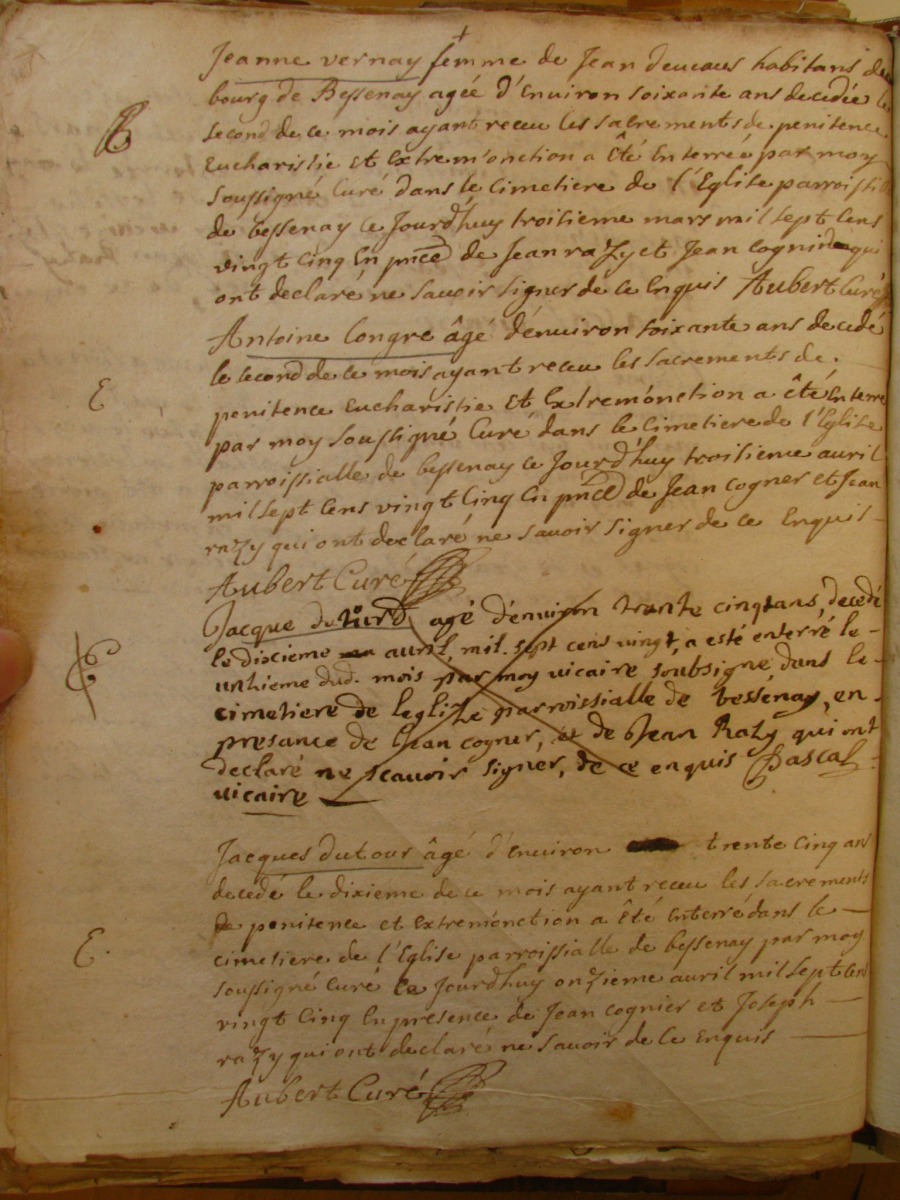 Jeanne vernay femme de Jean habitans du
bourg de Bessenay agée d'Environ soixante ans decedée le
second de ce mois ayant receu les sacrements de penitence
Eucharistie et Extrem'onction a Eté Enterrée par moy
soussigné Curé dans le Cimetiere de l'Eglise parroissi
de bessenay ce Jourd'huy troisieme mars mil sept Cens
vingt Cinq En pnce de Jean razy et Jean qui
ont declaré ne savoir signer de ce Enquis Aubert Curé
Antoine Congre âgé d'enuiron soixante ans decedé
le second de ce mois ayant receu les sacrements de
penitence Eucharistie Et Extremonction a êté Enterré
par moy soussigné Curé dans le Cimetiere de l'Eglise
parroissialle de bessenay ce Jourd'huy troisieme auril
mil sept Cens vingt Cinq En pnce de Jean Cogner et Jean
razy qui ont declaré ne savoir signer de ce Enquis
Aubert Curé
Jacque agé d'enuiron trante cinq ans, decedé
le dixieme auril, mil sept cens vingt, a esté enterré le
unhieme dud. mois par moy uicaire soubsigné dans le
cimetiere de leglize parroissialle de bessénay, en
presance de Jean cogner, et de Jean Razy qui ont
declaré ne scauoir signer, de ce enquis Pascal
uicaire
Jacques dutour âgé d'Enuiron trente Cinq ans
decedé le dixieme de ce mois ayant receu les sacrements
de penitence et Extremonction a Êté Enterré dans le
cimetiere de l'Eglise parroissialle de bessenay par moy
soussigné Curé ce Jourdhuy onzieme auril mil sept Cens
vingt Cinq En presence de Jean Cognier et Joseph
razy qui ont declaré ne savoir de ce Enquis
Aubert Curé